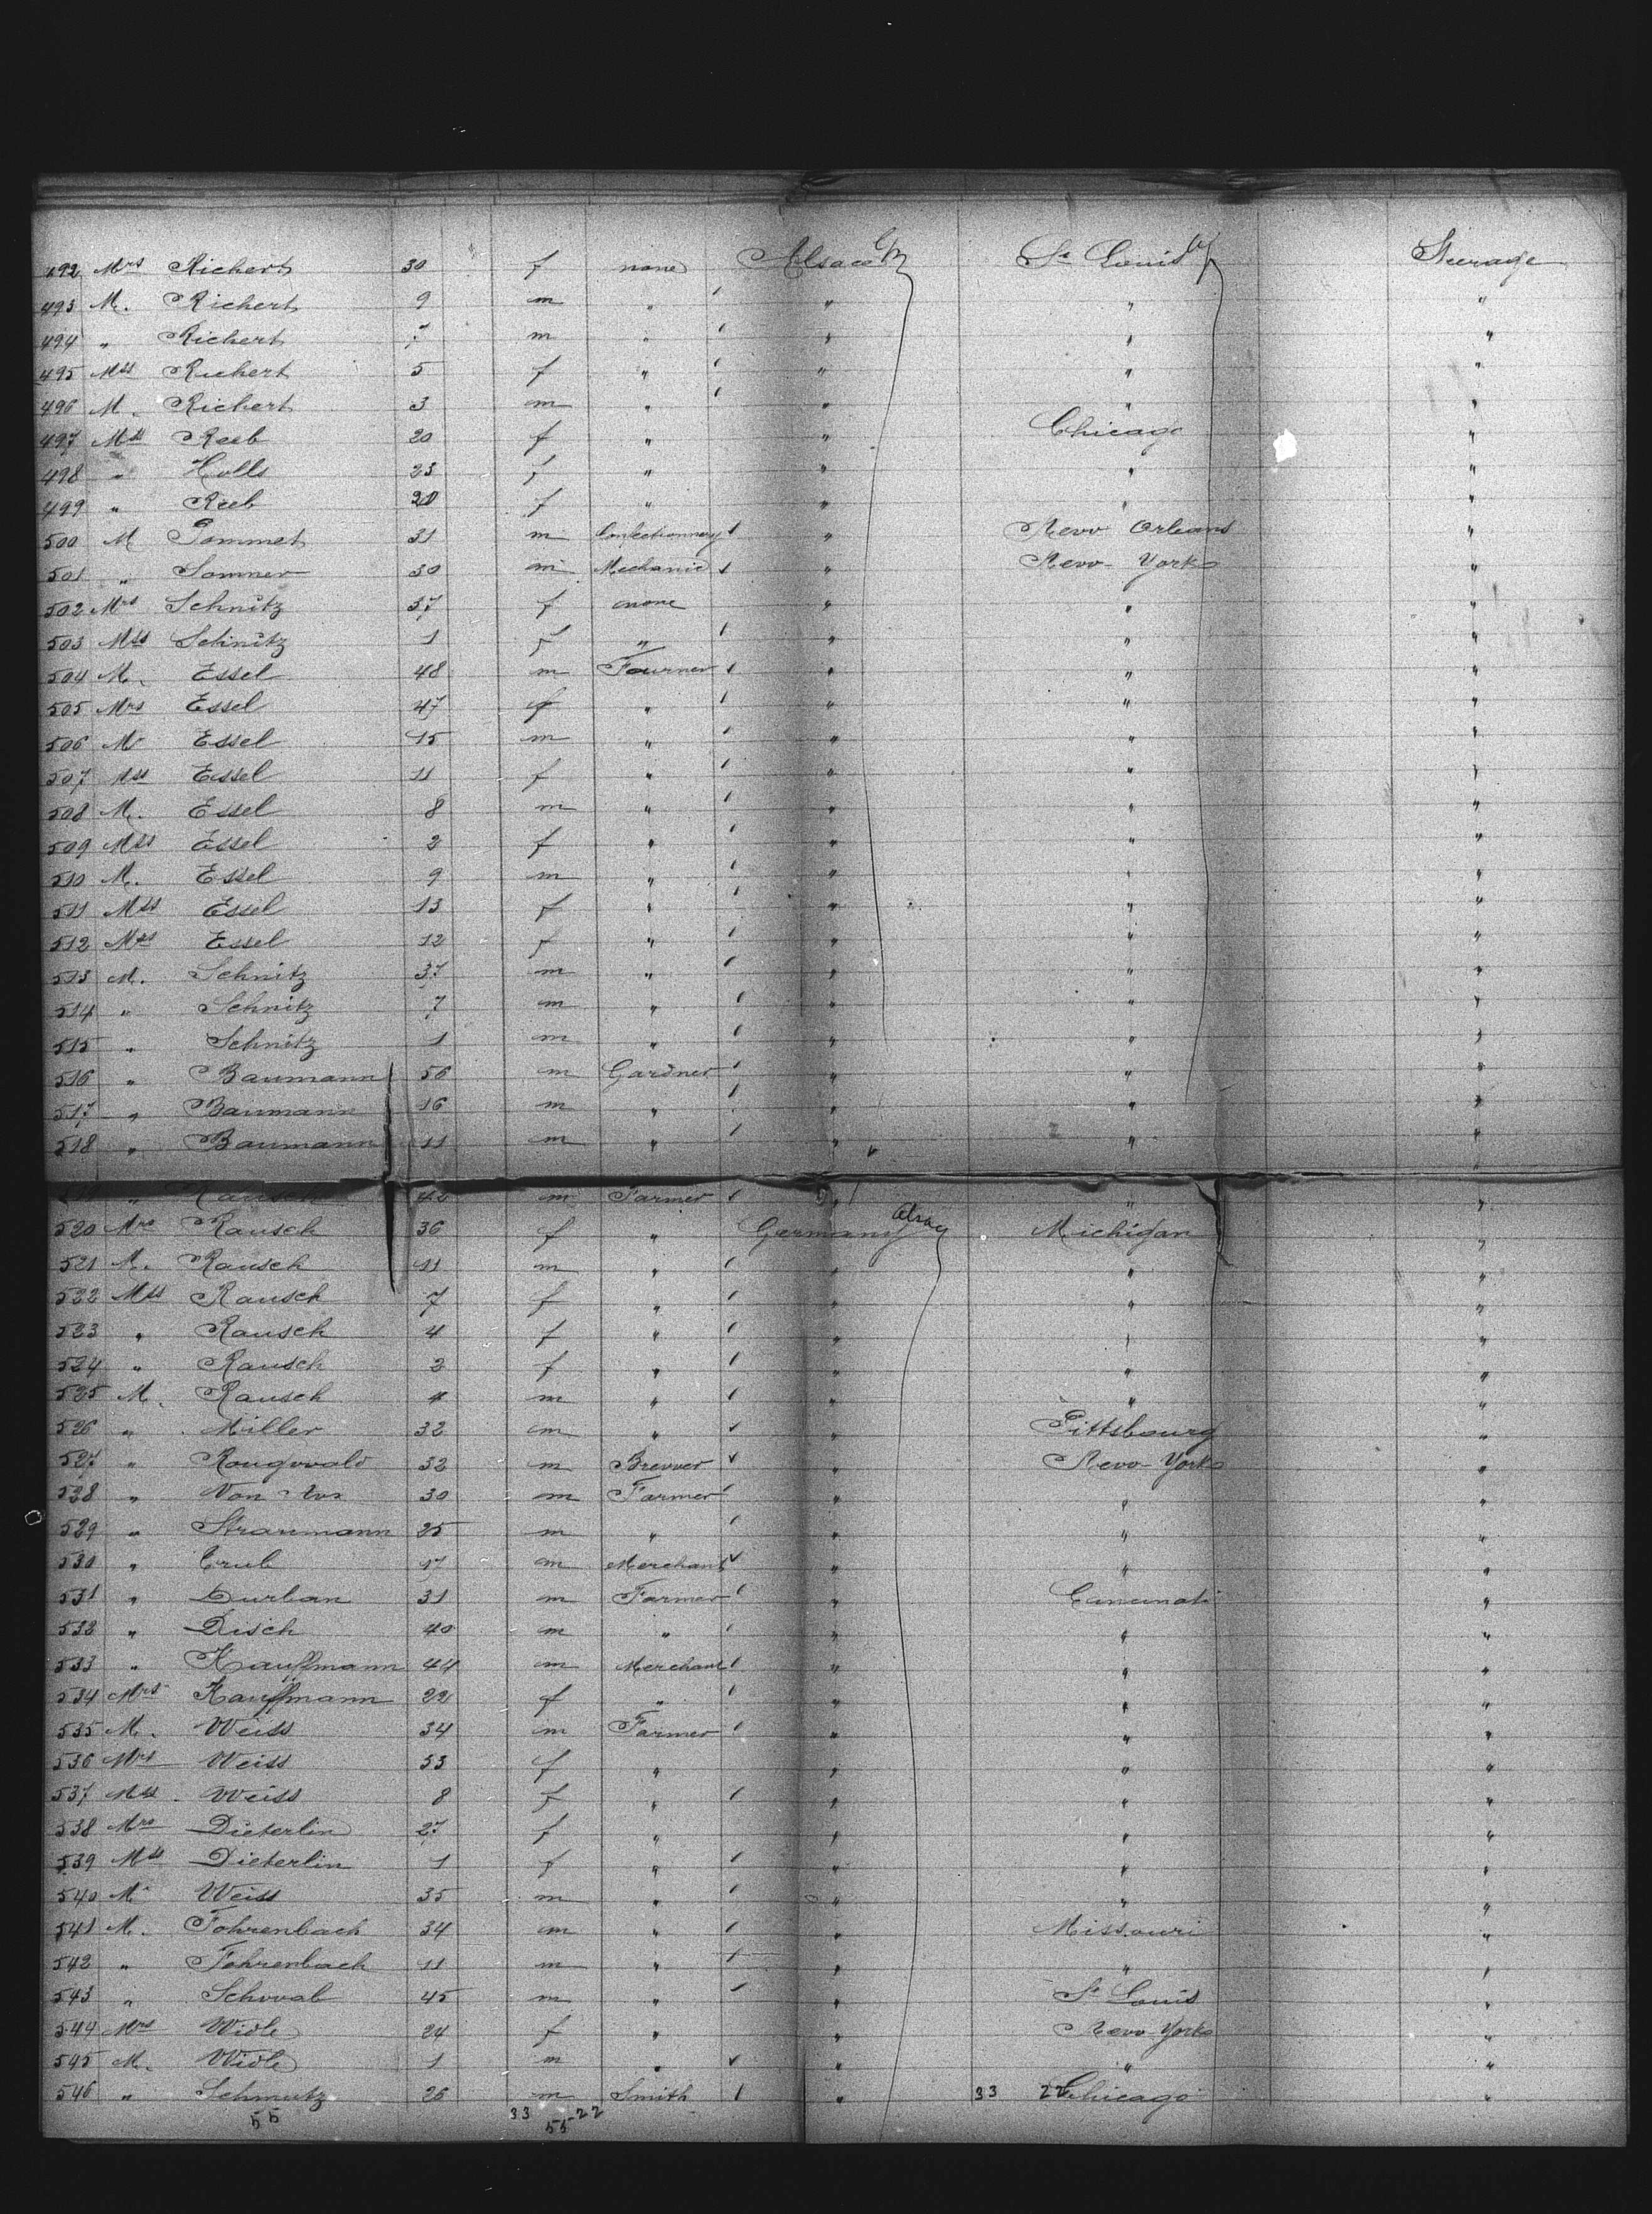 492 Mrs Richert 30 f none Alsace St Louis Steerage
493 M. Richert 9 m " " " "
494 " Richert 7 m " " " "
495 Mss Richert 5 f " " " "
496 M. Richert 3 m " " " "
497 Mss Reeb 20 f " " Chicago "
498 " Holls 23 f " " " "
499 " Reeb 20 f " " " "
500 M Pommet 31 m Confectionnery " New Orleans "
501 " Sommer 30 m Mechanic " New-York "
502 Mrs Schnitz 37 f none " " "
503 Mss Schnitz 1 f " " " "
504 M. Essel 48 m " " "
505 Mrs Essel 47 f " " " "
506 M Essel 15 m " " " "
507 Mss Essel 11 f " " " "
508 M. Essel 8 m " " " "
509 Mss Essel 2 f " " " "
510 M. Essel 9 m " " " "
511 Mss Essel 13 f " " " "
512 Mss Essel 12 f " " " "
513 M. Schnitz 37 m " " " "
514 " Schnitz 7 m " " " "
515 " Schnitz 1 m " " " "
516 " Baumann 56 m Gardner " " "
517 " Baumann 16 m " " " "
518 " Baumann 11 m " " " "
" Rausch 42 m Farmer " " "
520 Mrs Rausch 36 f " Germany Michigan "
521 M. Rausch 11 m " " " "
522 Mss Rausch 7 f " " " "
523 " Rausch 4 f " " " "
524 " Rausch 2 f " " " "
525 M. Rausch 4 m " " " "
526 " Miller 32 m " " Pittsbourg "
527 " Rougwald 32 m Brewer " New-York "
528 " Von 30 m Farmer " " "
529 " Straumann 25 m " " " "
530 " 17 m Merchant " " "
531 " Durban 31 m Farmer " Cincinati "
532 " Disch 40 m " " " "
533 " Kauffmann 44 m Merchant " " "
534 Mrs Kauffmann 22 f " " " "
535 M. Weiss 34 m Farmer " " "
536 Mrs Weiss 33 f " " " "
537 Mss Weiss 8 f " " " "
538 Mrs Dieterlin 27 f " " " "
539 Mss Dieterlin 1 f " " " "
540 M Weiss 35 m " " " "
541 M. Fohrenbach 34 m " " Missouri "
542 " Fohrenbach 11 m " " " "
543 " Schwab 45 m " " St Louis "
544 Mrs Widle 24 f " " New-York "
545 M. Widle 1 m " " " "
546 " Schmutz 26 m Smith " 33 22 Chicago "
55 33 22
55